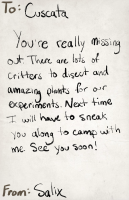 To: Cuscata
You're really missing
out. There are lots of
critters to disect and
amazing plants for our
experiments. Next time
I will have to sneak
you along to camp with
me. See you soon!
From: Salix